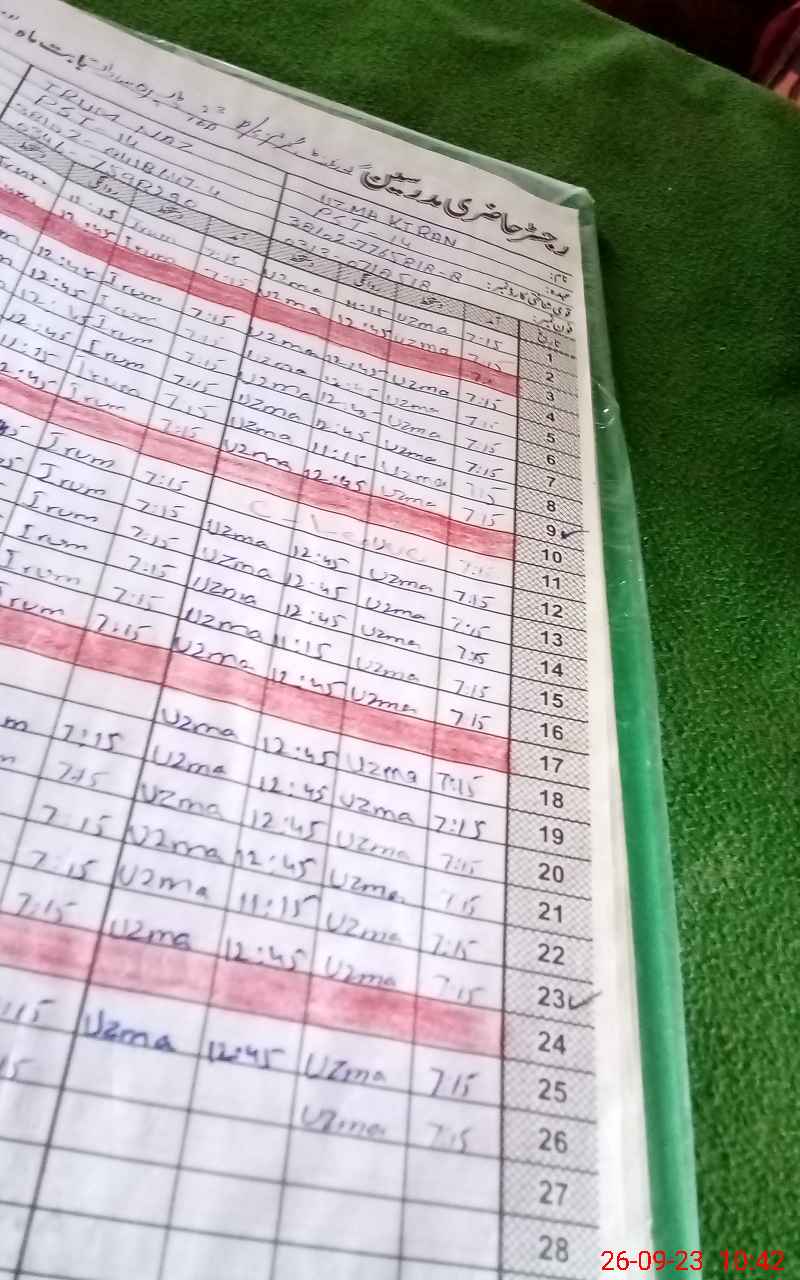 رجسٹر حاضری مدرسین
نام: UZMA KIRAN IRUM NAZ
عہدہ: PST-14 PST-14
قومی شناختی کارڈ نمبر: 38102-7765818-8
فون نمبر: 0313-0718518
تاریخ آمد دستخط روانگی دستخط آمد دستخط روانگی دستخط
1 7:15 Uzma 11:15 Uzma 7:15 Irum 11:15 Irum
2 7:15 Uzma 12:45 Uzma 7:15 Irum 12:45 Irum
3
4 7:15 Uzma 12:45 Uzma 7:15 Irum 12:45
5 7:15 Uzma 12:45 Uzma 7:15 Irum 12:45
6 7:15 Uzma 12:45 Uzma 7:15 Irum 12:45
7 7:15 Uzma 12:45 Uzma 7:15 Irum 12:45
8 7:15 Uzma 11:15 Uzma 7:15 Irum 11:15
9 7:15 Uzma 12:45 Uzma 7:15 Irum 12:45
10
11 7:15 C-Leave 7:15 Irum
12 7:15 Uzma 12:45 Uzma 7:15 Irum
13 7:15 Uzma 12:45 Uzma 7:15 Irum
14 7:15 Uzma 12:45 Uzma 7:15 Irum
15 7:15 Uzma 11:15 Uzma 7:15 Irum
16 7:15 Uzma 12:45 Uzma 7:15 Irum
17
18 7:15 Uzma 12:45 Uzma
19 7:15 Uzma 12:45 Uzma 7:15
20 7:15 Uzma 12:45 Uzma 7:15
21 7:15 Uzma 12:45 Uzma 7:15
22 7:15 Uzma 11:15 Uzma 7:15
23 7:15 Uzma 12:45 Uzma 7:15
24
25 7:15 Uzma 12:45 Uzma
26 7:15 Uzma
27
28
26-09-23 10:42